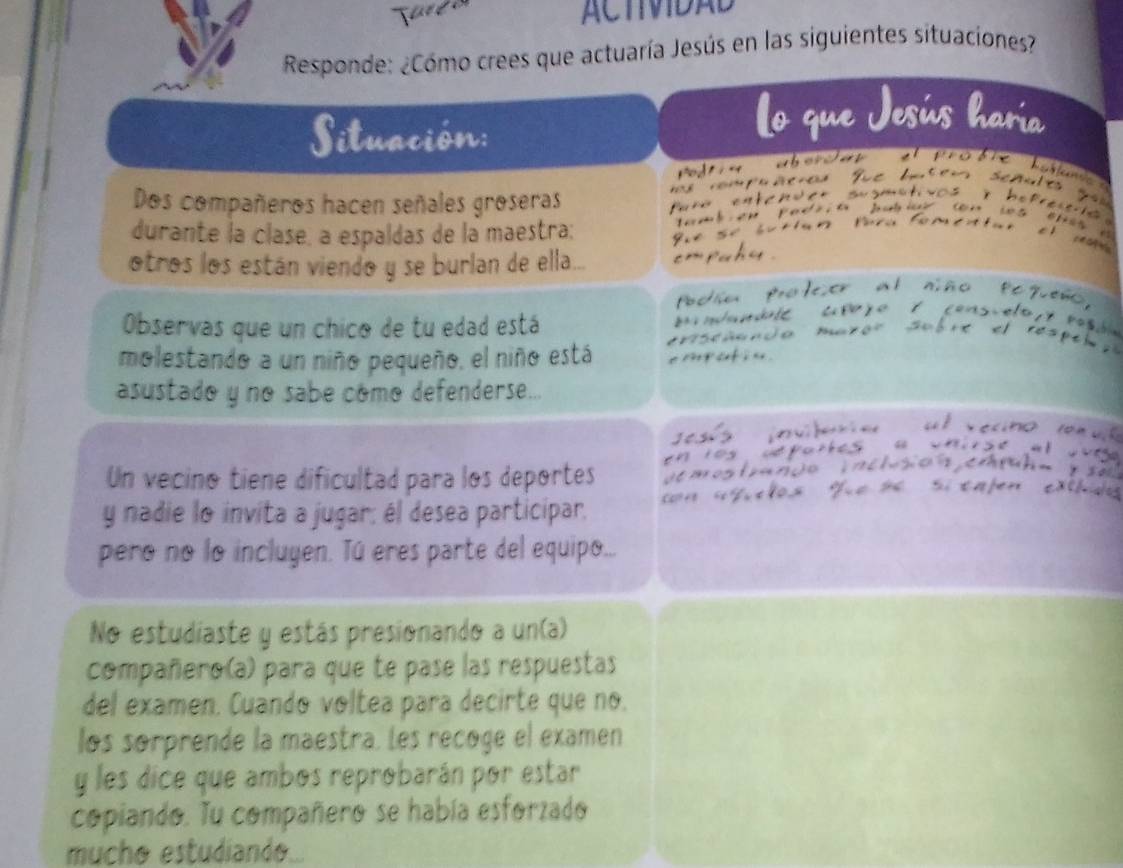 Tarea
ACTIVIDAD
Responde: ¿Cómo crees que actuaría Jesús en las siguientes situaciones?
Situación:
Lo que Jesús haría
Dos compañeros hacen señales groseras
durante la clase, a espaldas de la maestra;
otros los están viendo y se burlan de ella...
Podria abordar el
los compañeros que hacen señales
Para entender sus motivos y
tambien Podria hablar con los otros
que se burlan Para fomentar el
Observas que un chico de tu edad está
molestando a un niño pequeño, el niño está
asustado y no sabe cómo defenderse...
Podria Proteger al niño Pequeño,
brindandole apoyo y consuelo, y
enseñando mayor sobre el
empatia.
Un vecino tiene dificultad para los deportes
y nadie lo invita a jugar; él desea participar,
pero no lo incluyen. Tú eres parte del equipo...
Jesús invitaria al vecino con
en los deportes a unirse al
demostrando inclusion,
con aquellos que se sienten
No estudiaste y estás presionando a un(a)
compañero(a) para que te pase las respuestas
del examen. Cuando voltea para decirte que no,
los sorprende la maestra. Les recoge el examen
y les dice que ambos reprobarán por estar
copiando. Tu compañero se había esforzado
mucho estudiando...